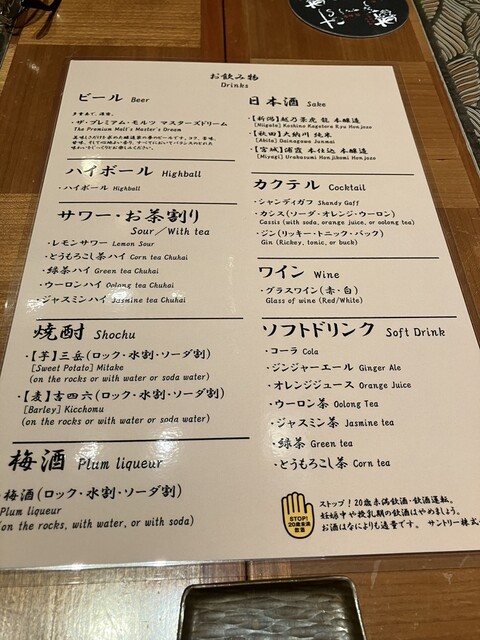 お飲み物
Drinks
ビール Beer
・ザ・プレミアム・モルツ マスターズドリーム
The Premium Malt's Master's Dream
ハイボール Highball
・ハイボール Highball
サワー・お茶割り
Sour／With tea
・レモンサワー Lemon Sour
・とうもろこし茶ハイ Corn tea Chuhai
・緑茶ハイ Green tea Chuhai
・ウーロンハイ Oolong tea Chuhai
・ジャスミンハイ Jasmine tea Chuhai
焼酎 Shochu
・【芋】三岳(ロック・水割・ソーダ割)
[Sweet Potato] Mitake
(on the rocks or with water or soda water)
・【麦】吉四六(ロック・水割・ソーダ割)
[Barley] Kicchomu
(on the rocks or with water or soda water)
梅酒 Plum liqueur
・梅酒(ロック・水割・ソーダ割)
Plum liqueur
(on the rocks, with water, or with soda)
日本酒 Sake
・【新潟】越乃景虎 龍 本醸造
[Niigata] Koshino Kagetora Ryu Honjozo
・【秋田】大納川 純米
[Akita] Dainagawa Junmai
・【宮城】浦霞 本仕込 本醸造
[Miyagi] Urakazumi Honjikomi Honjozo
カクテル Cocktail
・シャンディガフ Shandy Gaff
・カシス(ソーダ・オレンジ・ウーロン)
Cassis (with soda, orange juice, or oolong tea)
・ジン(リッキー・トニック・バック)
Gin (Rickey, tonic, or buck)
ワイン Wine
・グラスワイン(赤・白)
Glass of wine (Red/White)
ソフトドリンク Soft Drink
・コーラ Cola
・ジンジャーエール Ginger Ale
・オレンジジュース Orange Juice
・ウーロン茶 Oolong Tea
・ジャスミン茶 Jasmine tea
・緑茶 Green tea
・とうもろこし茶 Corn tea
STOP!
20歳未満
飲酒
ストップ！20歳未満飲酒・飲酒運転。
妊娠中や授乳期の飲酒はやめましょう。
お酒はなによりも適量です。 サントリー株式